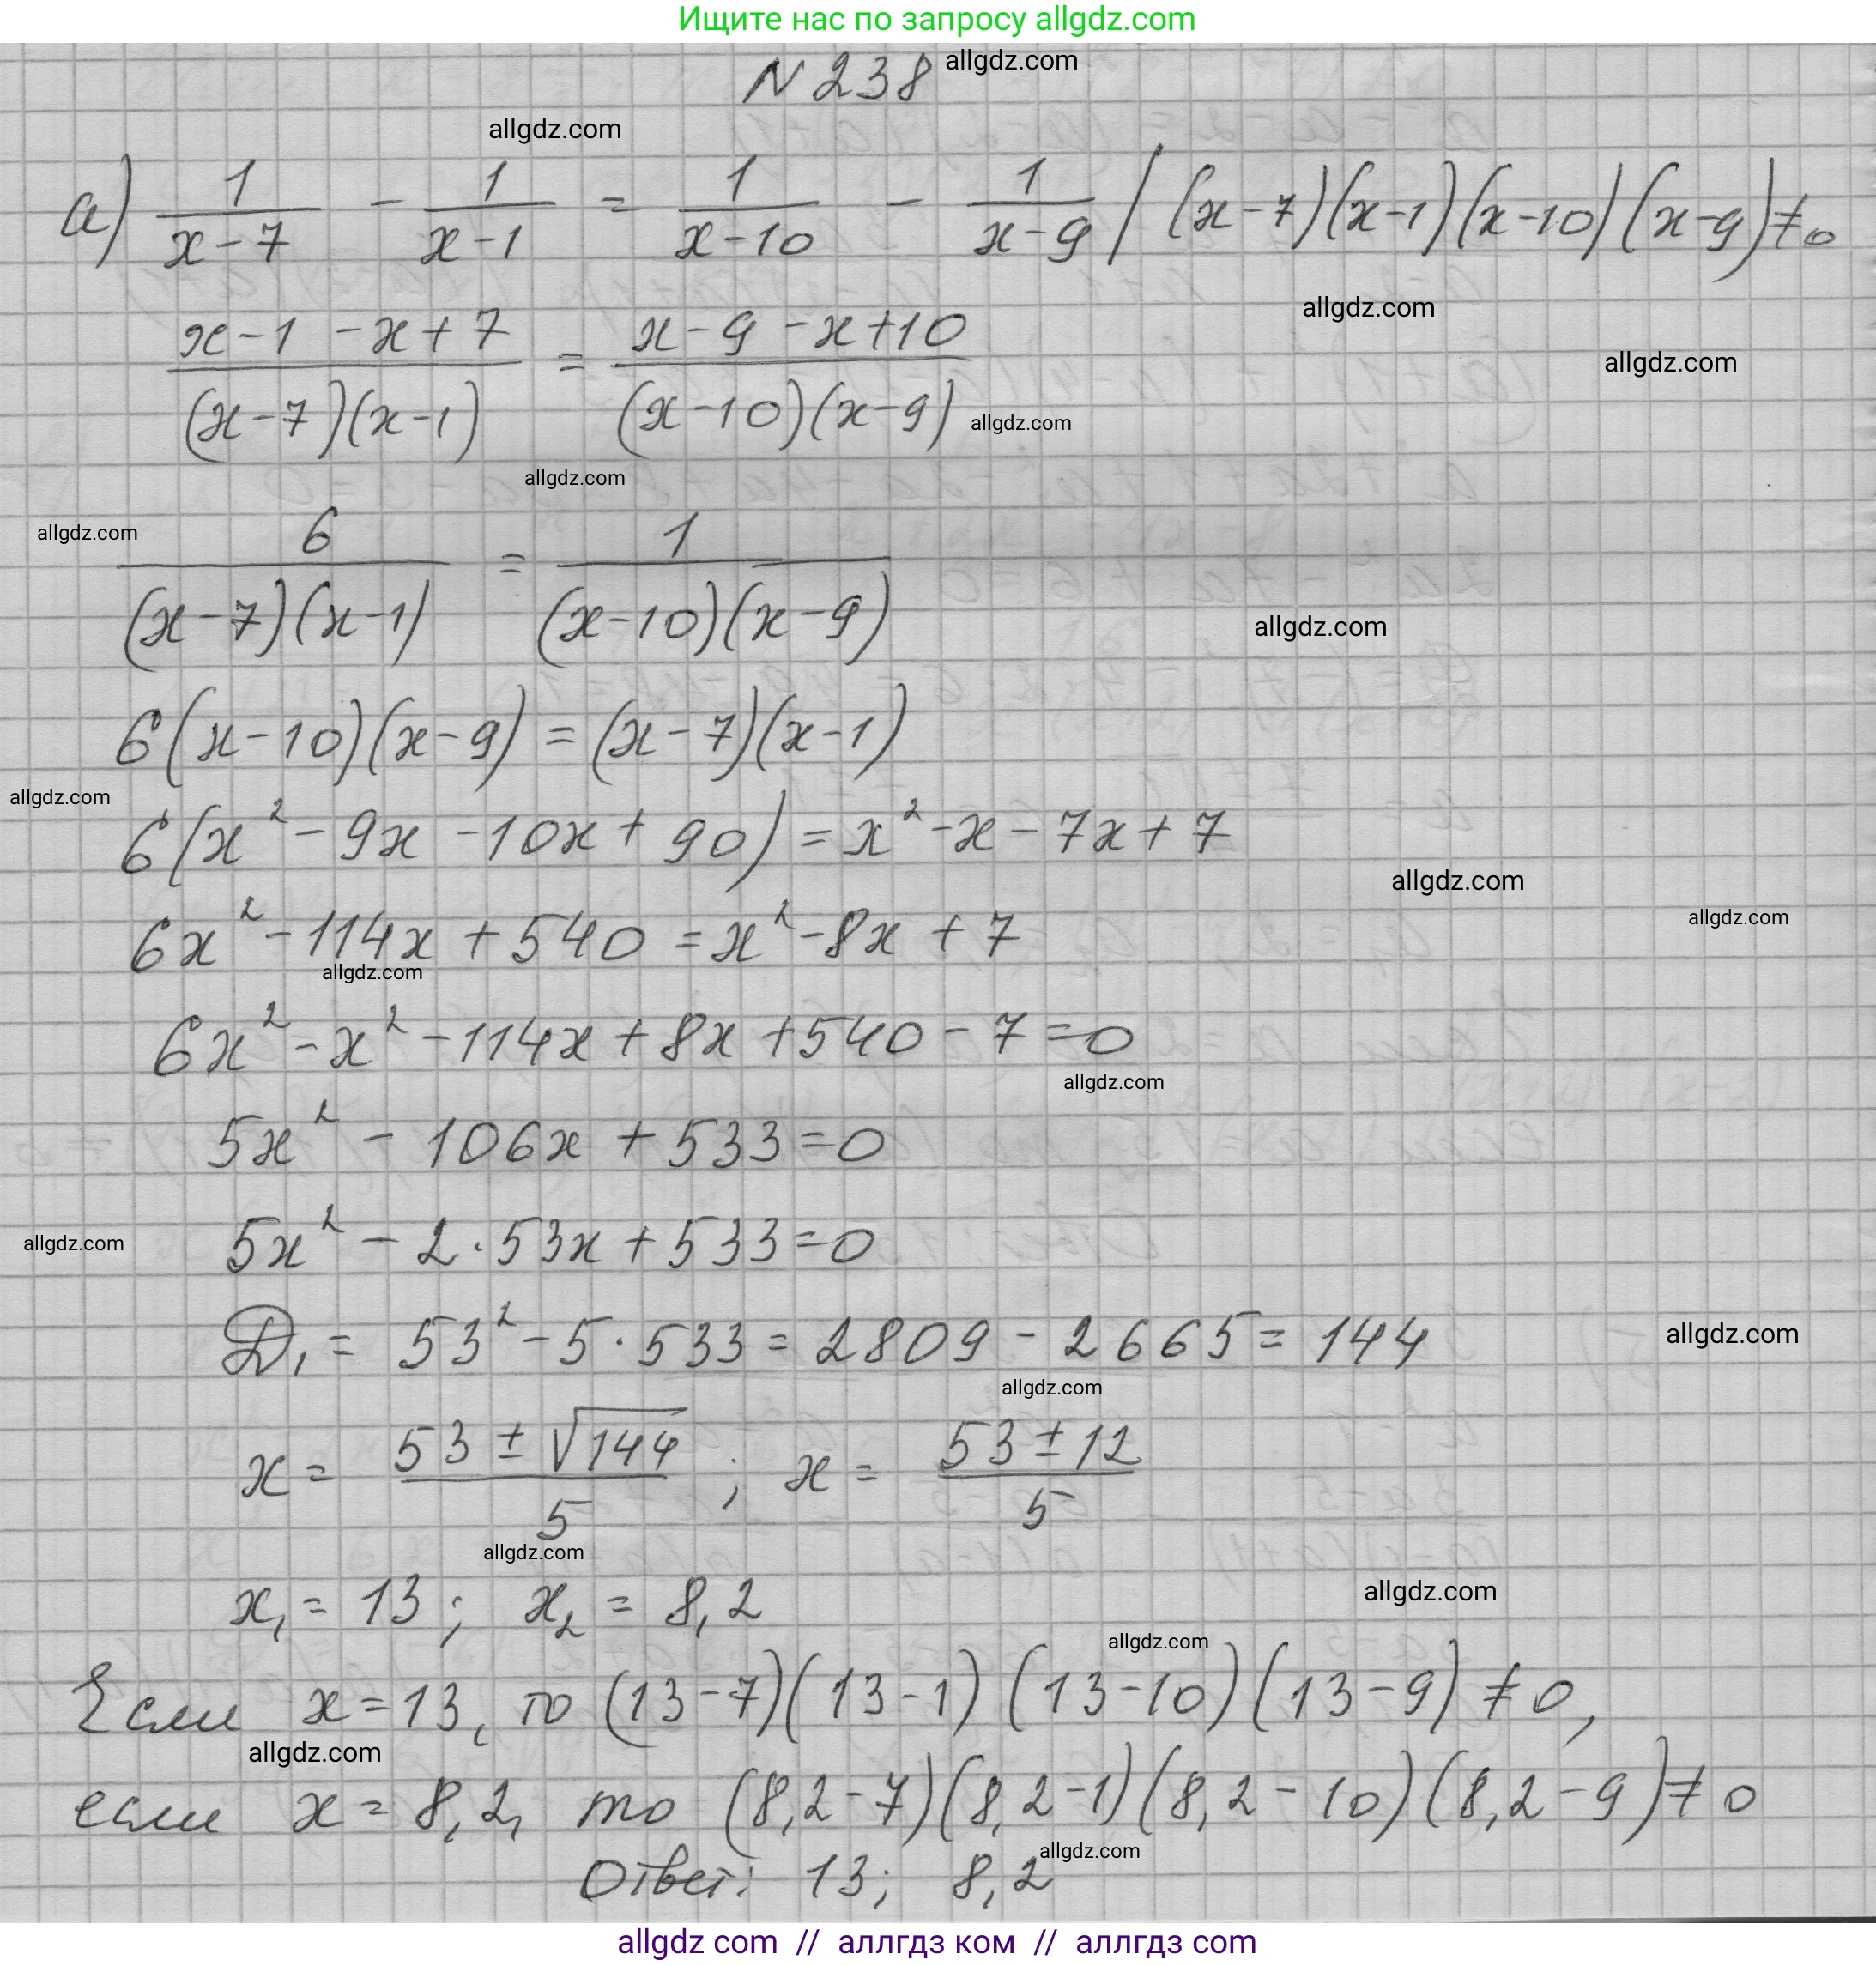 Ищите нас по запросу allgdz.com
N 238 allgdz.com
allgdz.com
а) 1/(x-7) - 1/(x-1) = 1/(x-10) - 1/(x-9) / (x-7)(x-1)(x-10)(x-9)≠0
allgdz.com
(x-1-x+7)/((x-7)(x-1)) = (x-9-x+10)/((x-10)(x-9))
allgdz.com
allgdz.com
allgdz.com
allgdz.com
6/((x-7)(x-1)) = 1/((x-10)(x-9))
allgdz.com
6(x-10)(x-9) = (x-7)(x-1)
allgdz.com
6(x²-9x-10x+90) = x²-x-7x+7
allgdz.com
allgdz.com
6x²-114x+540 = x²-8x+7
allgdz.com
6x²-x²-114x+8x+540-7=0
allgdz.com
5x²-106x+533=0
5x²-2·53x+533=0
allgdz.com
D₁ = 53²-5·533 = 2809-2665 = 144
allgdz.com
allgdz.com
x = (53±√144)/5 ; x = (53±12)/5
allgdz.com
x₁ = 13; x₂ = 8,2
allgdz.com
allgdz.com
Если x=13, то (13-7)(13-1)(13-10)(13-9)≠0,
allgdz.com
если x=8,2, то (8,2-7)(8,2-1)(8,2-10)(8,2-9)≠0
allgdz.com
Ответ: 13; 8,2
allgdz com // аллгдз ком // аллгдз com